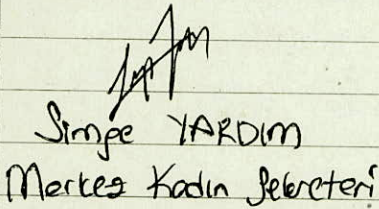 Simge YARDIM
Merkez Kadın Sekreteri